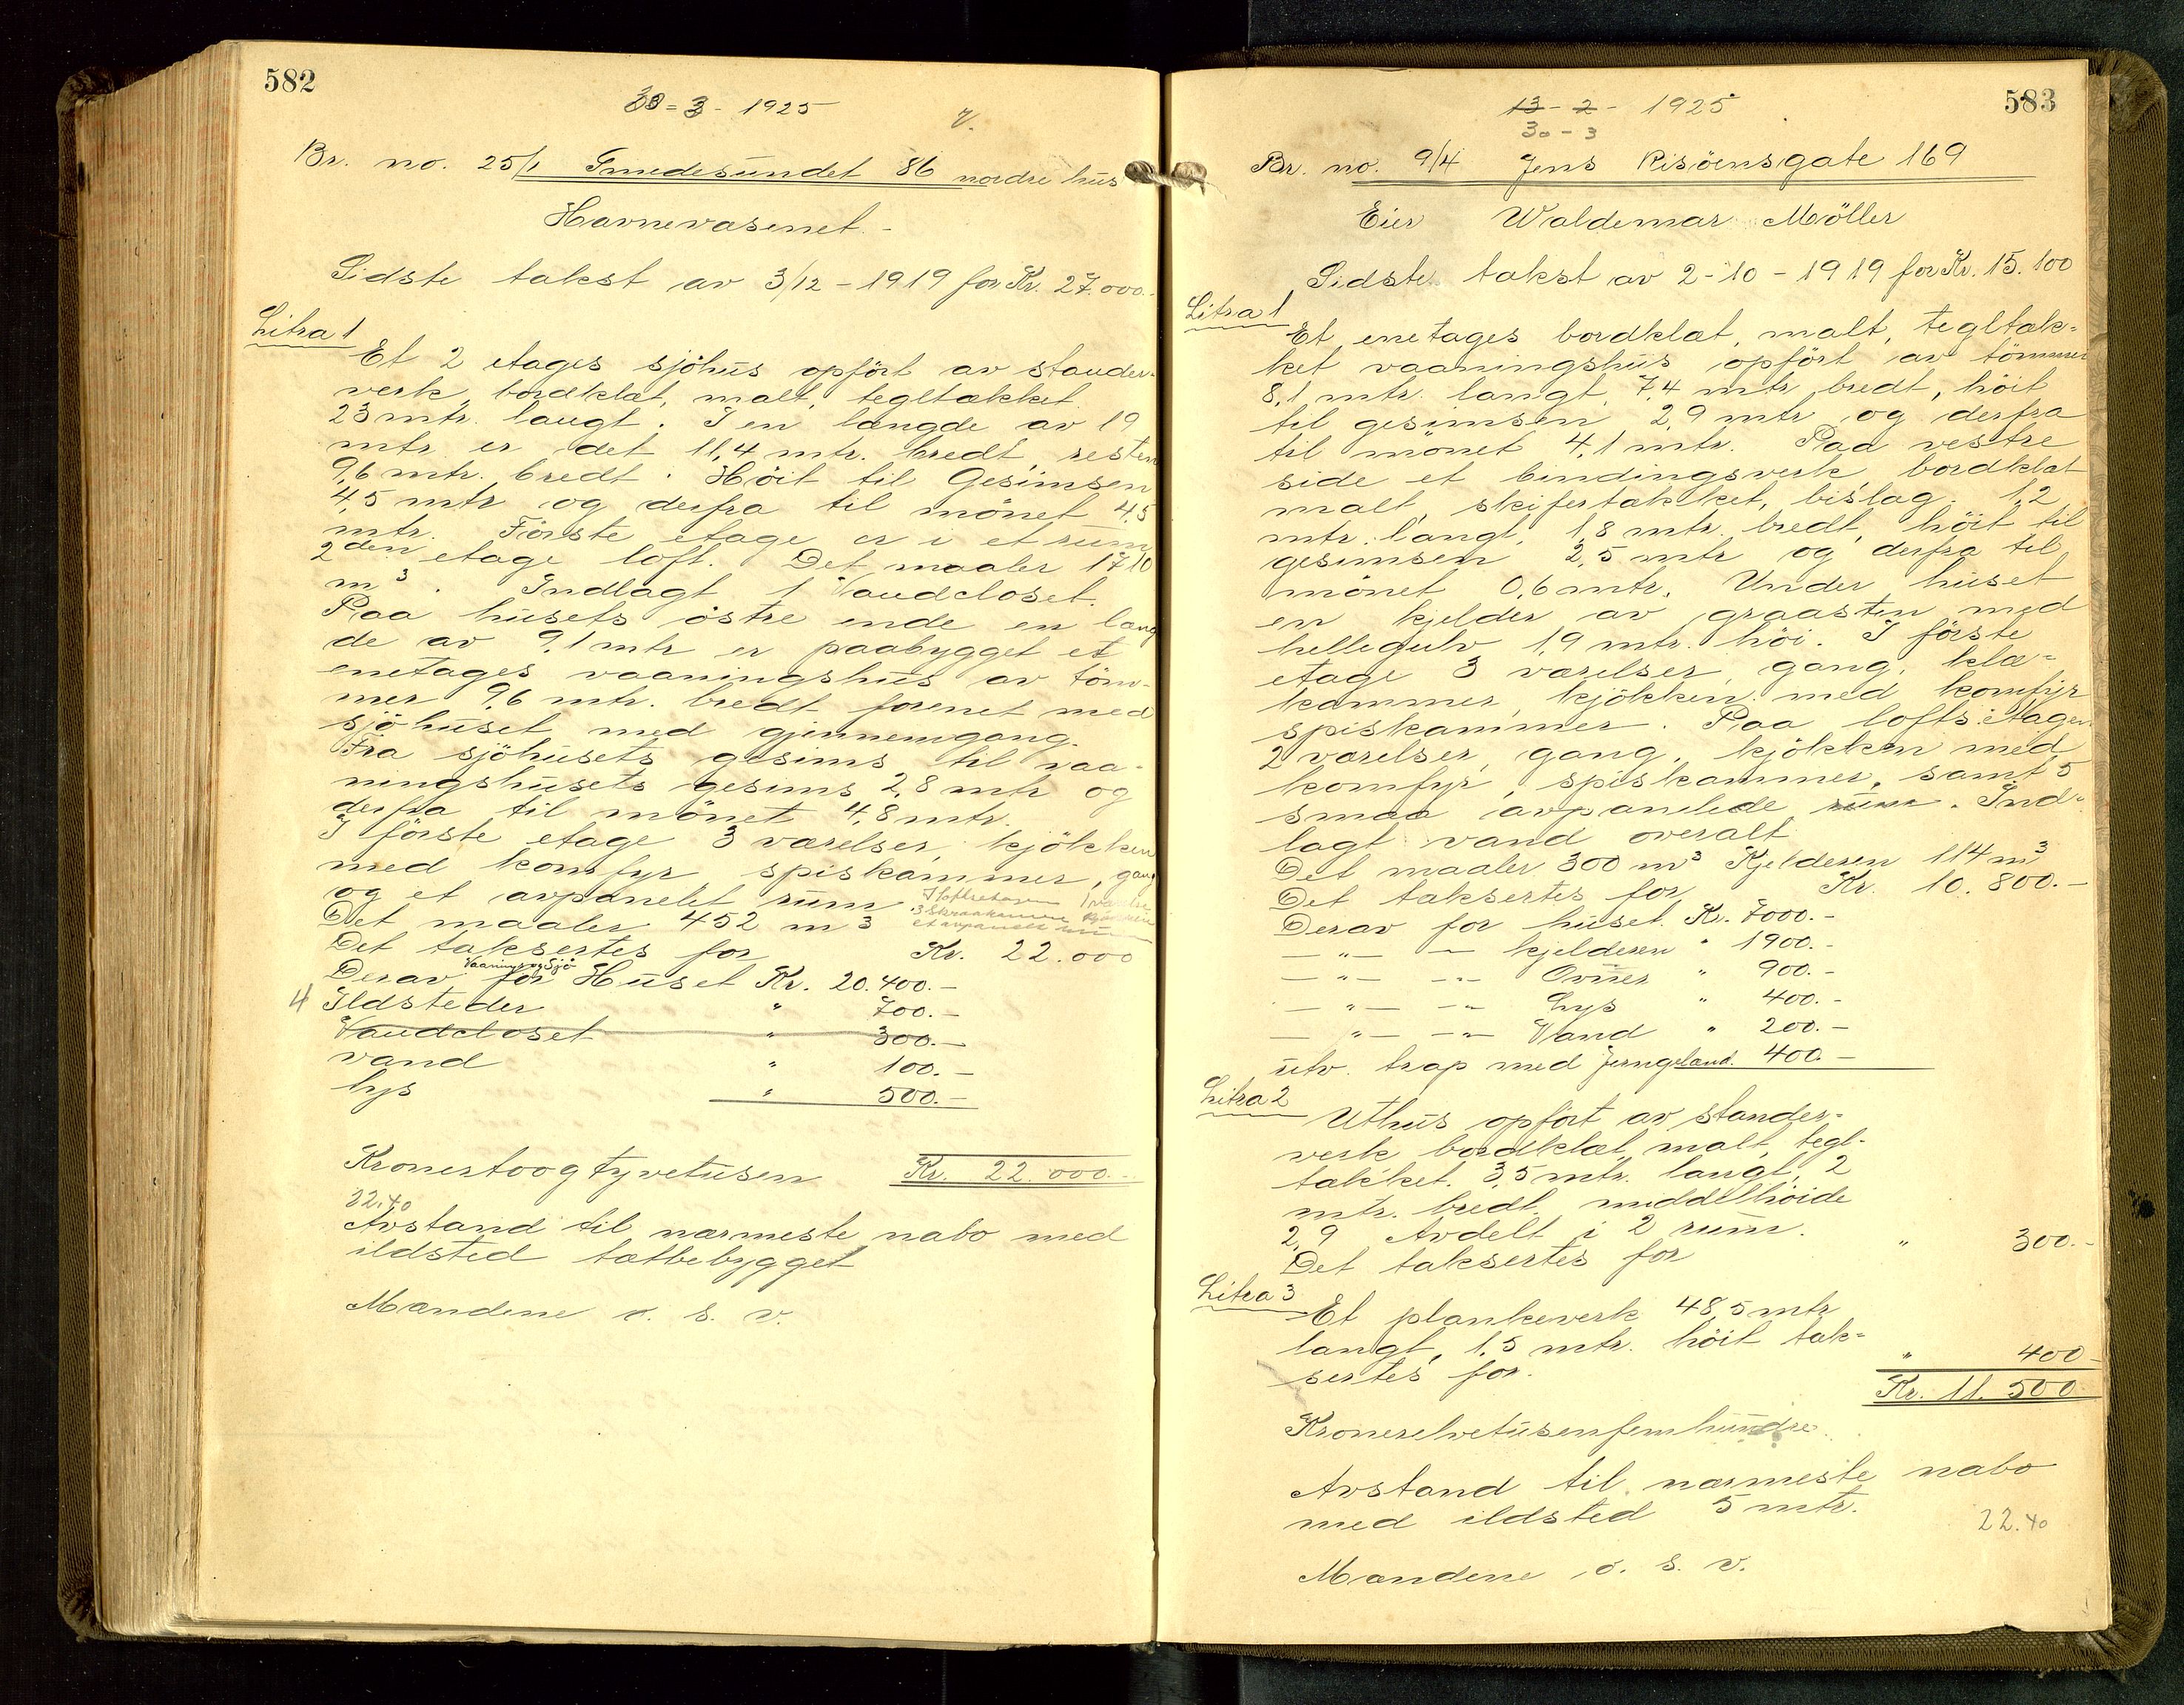 582
30 = 3 - 1925
Br. no. 25/1 Smedesundet 86 nordre hus
Havnevæsenet. -
Sidste takst av 3/12 - 1919 for Kr. 27.000. -
Litra 1
Et 2 etages sjöhus opfört av stender-
verk, bordklæt, malt, tegltækket
23 mtr. langt. I en længde av 19
mtr. er det 11,4 mtr. bredt, resten
9,6 mtr. bredt. Höit til Gesimsen
4,5 mtr og derfra til mönet 4,5
mtr. Förste etage er i et rum
2den etage loft. Det maaler 1710
m3. Indlagt 1 Vandcloset.
Paa husets östre ende en læng
de av 9,1 mtr er paabygget et
enetages vaaningshus av töm-
mer 9,6 mtr. bredt forenet med
sjöhuset med gjennemgang.
Fra sjöhusets gesims til vaa-
ningshusets gesims 2,8 mtr og
derfra til mönet 4,8 mtr.
I förste etage 3 værelser, kjökken
med komfyr spiskammer, gang
og et avpanelet rum. I loftsetagen 1 værelse
3 skraakammer kjökken
et avpanelt rum
Det maaler 452 m3
Det taksertes for Kr. 22.000
Vaaning og Sjö
Derav for Huset Kr. 20.400. -
4 Ildsteder " 700. -
Vandcloset " 300. -
vand " 100. -
Lys " 500. -
Kronertoogtyvetusen Kr. 22.000. -
22.40
Avstand til nærmeste nabo med
ildsted tætbebygget
Mændene o. s. v.
583
13 - 2 - 1925
30 - 3
Br. no. 9/4 Jens Risöensgate 169
Eier Waldemar Möller
Sidste takst av 2 - 10 - 1919 for Kr. 15.100
Litra 1
Et enetages bordklæt, malt, tegltæk=
ket vaaningshus opfört av tömmer
8,1 mtr. langt, 7,4 mtr bredt, höit
til gesimsen 2,9 mtr og derfra
til mönet 4,1 mtr. Paa vestre
side et bindingsverk bordklæt
malt, skifertækket, bislag. 1,2
mtr. langt, 1,8 mtr. bredt, höit til
gesimsen 2,5 mtr og derfra til
mönet 0,6 mtr. Under huset
en kjelder av graasten med
hellegulv 1,9 mtr. höi. I förste
etage 3 værelser, gang, klæ=
kammer, kjökken med komfyr
spiskammer. Paa loftsetagen
2 værelser, gang, kjökken med
komfyr, spiskammer, samt 5
smaa avpanelede rum. Ind=
lagt vand overalt
Det maaler 300 m3 Kjelderen 114 m3
Det taksertes for Kr. 10.800. -
Derav for huset Kr. 7000. -
— " — — kjelderen " 1900. -
— " — — " — Ovner " 900. -
— " — — " — Lys " 400. -
— " — — " — Vand " 200. -
utv. trap med Jerngeland. 400. -
Litra 2
Uthus opfört av stender=
verk bordklæt, malt, tegl-
tækket. 3,5 mtr. langt, 2
mtr. bredt, middelhöide
2,9 Avdelt i 2 rum.
Det taksertes for " 300. -
Litra 3
Et plankeverk 48,5 mtr
langt, 1,5 mtr. höit tak=
sertes for. " 400 -
Kr. 11.500
Kronerelvetusenfemhundre
Avstand til nærmeste nabo
med ildsted 5 mtr.
22.40
Mændene o. s. v.